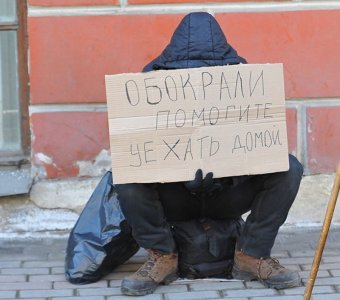 ОБОКРАЛИ
ПОМОГИТЕ
УЕХАТЬ ДОМОЙ